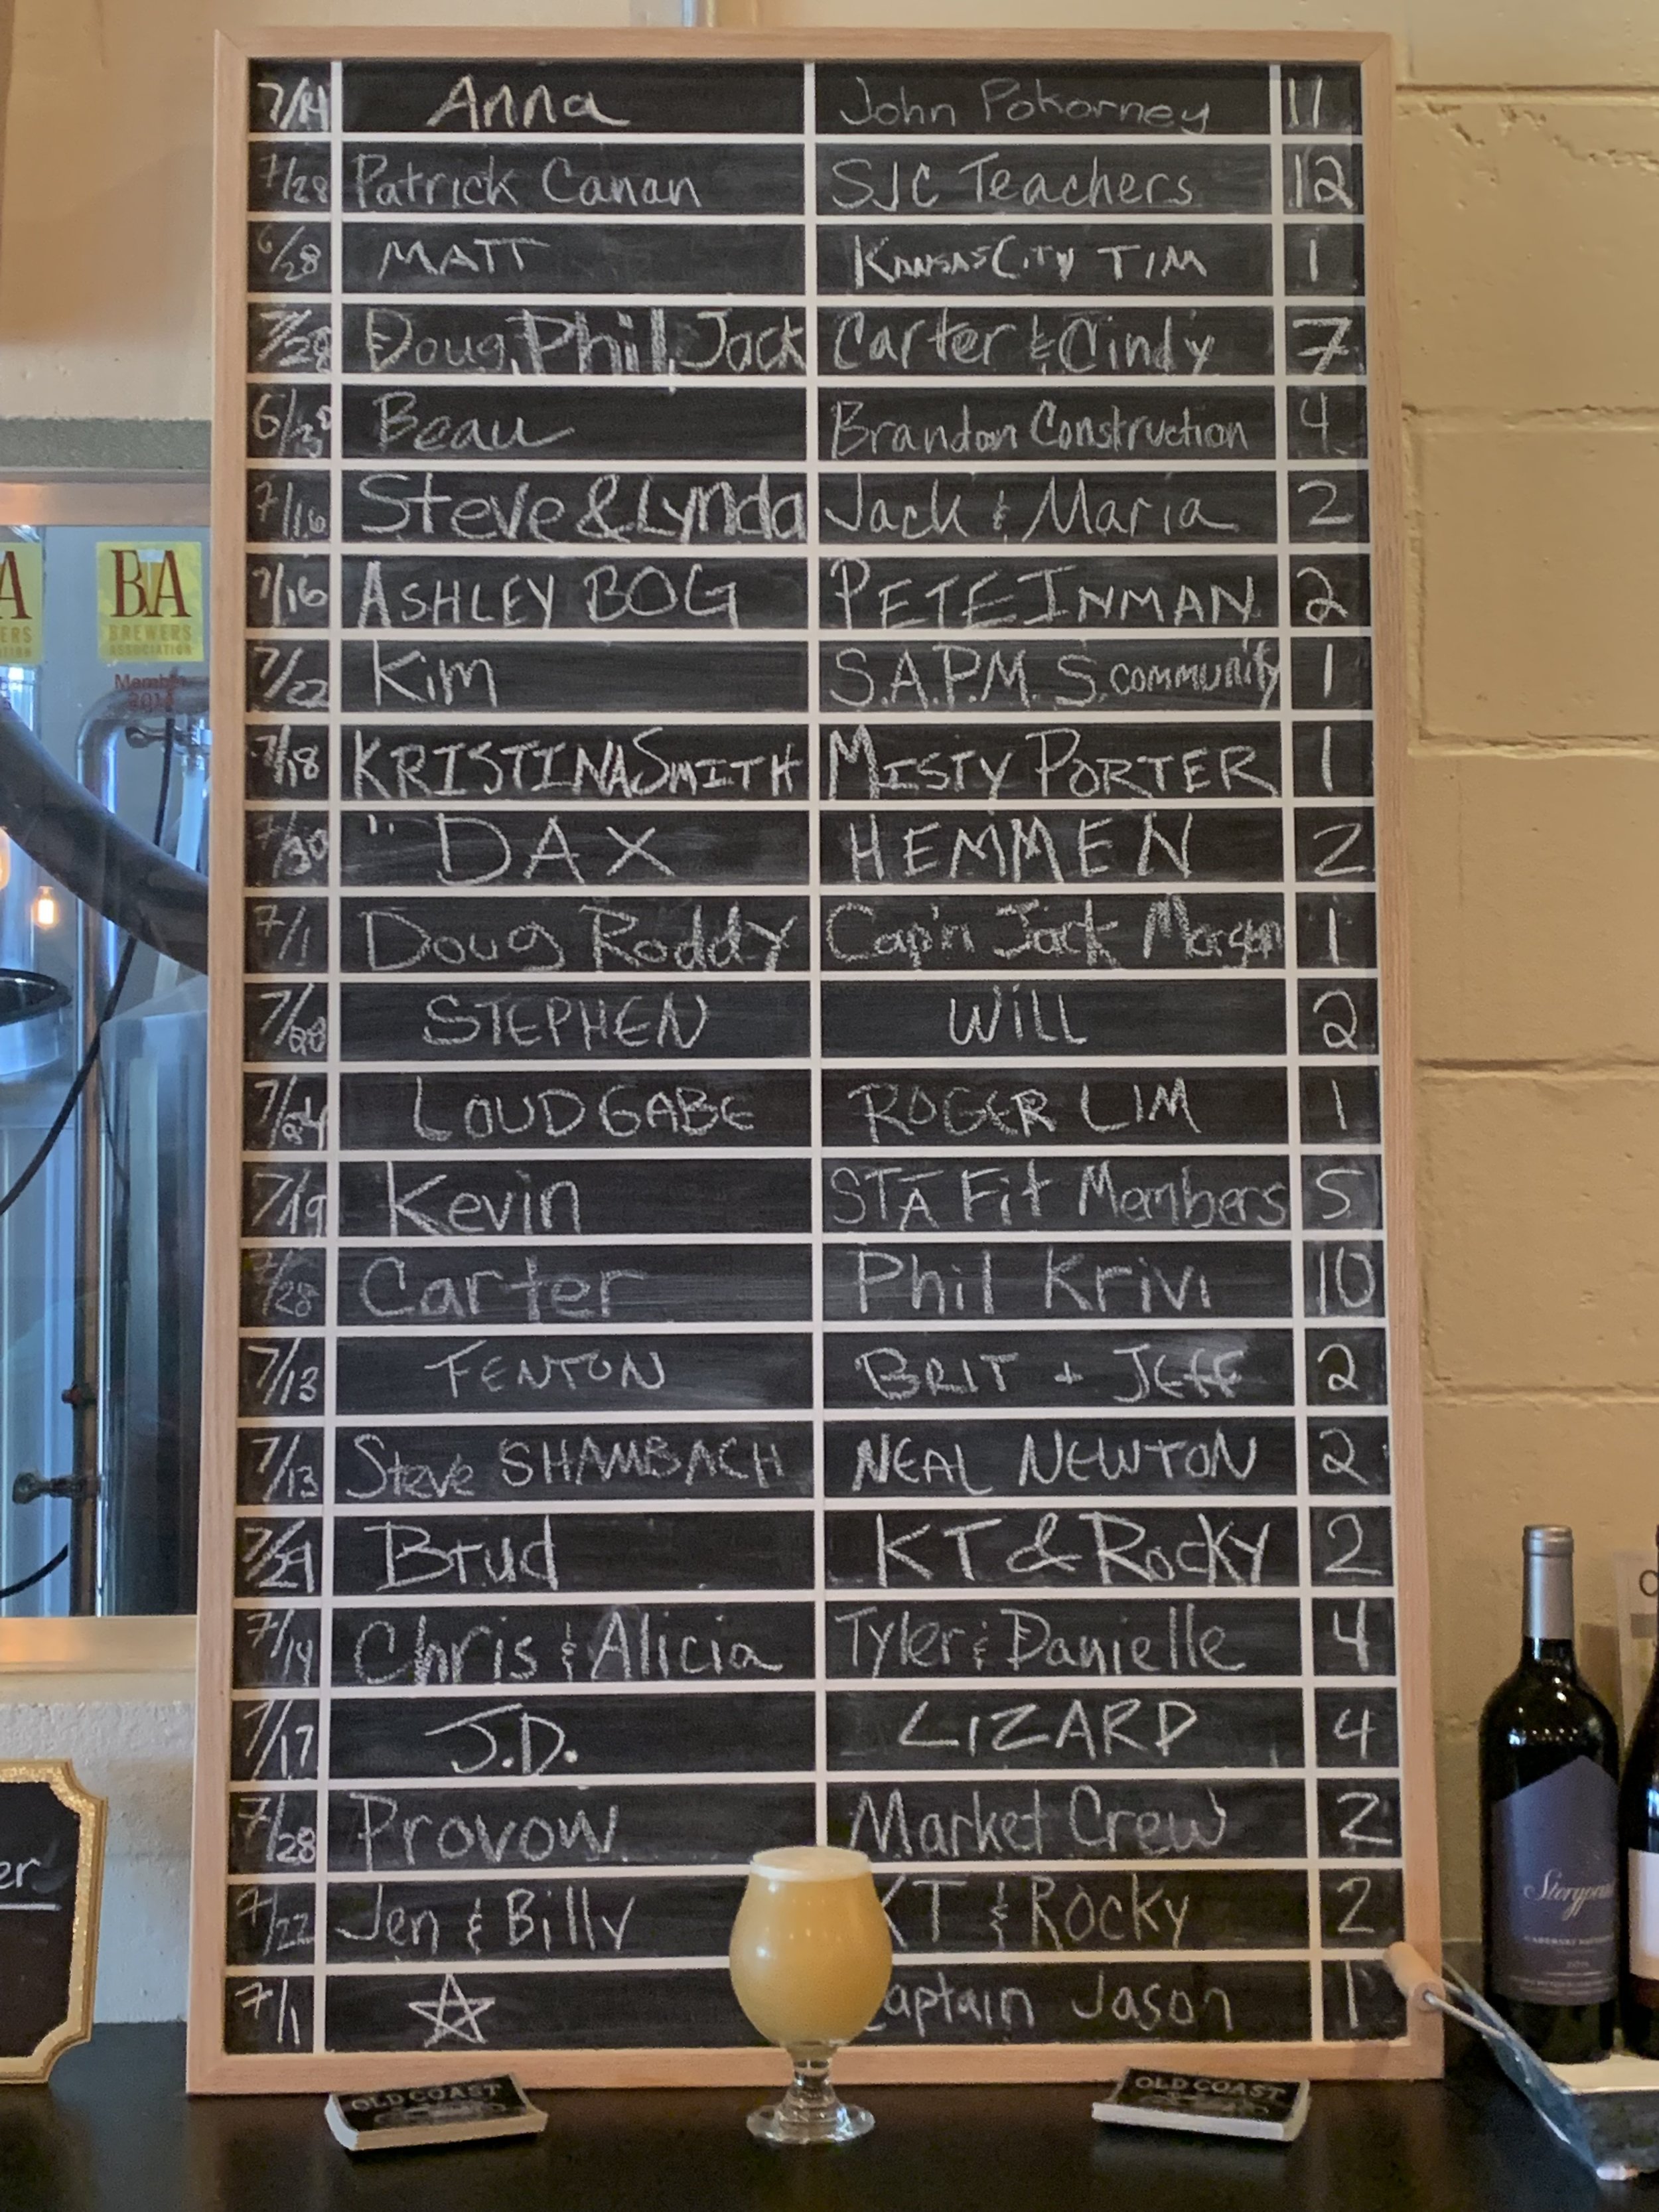 7/14 Anna John Pokorney 11
7/28 Patrick Canan SJC Teachers 12
6/28 MATT KANSAS CITY TIM 1
7/28 Doug, Phil, Jack Carter & Cindy 7
6/30 Beau Brandon Construction 4
7/16 Steve & Lynda Jack & Maria 2
7/16 ASHLEY BOG PETE INMAN 2
7/22 Kim S.A.P.M.S. community 1
7/18 KRISTINA SMITH MISTY PORTER 1
7/30 "DAX HEMMEN 2
7/1 Doug Roddy Cap'n Jack Morgan 1
7/28 STEPHEN WiLL 2
7/24 LOUD GABE ROGER LIM 1
7/19 Kevin STA Fit Members 5
7/28 Carter Phil Krivi 10
7/13 FENTON BRIT + JEFF 2
7/13 Steve SHAMBACH NEAL NEWTON 2
7/21 Brud KT & Rocky 2
7/14 Chris & Alicia Tyler & Danielle 4
7/17 J.D. LIZARD 4
7/28 Provow Market Crew 2
7/22 Jen & Billy KT & Rocky 2
7/1 aptain Jason 1
BA
BREWERS
ASSOCIATION
Member
A
ERS
er
OLD COAST
OLD COAST
CABERNET